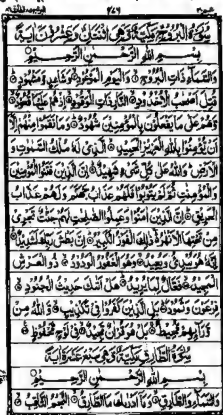 سُورَةُ الْبُرُوجِ مَكِّيَّةٌ وَهِيَ اثْنَتَانِ وَعِشْرُونَ اٰيَةً
بِسْمِ اللّٰهِ الرَّحْمٰنِ الرَّحِيْمِ
وَالسَّمَآءِ ذَاتِ الْبُرُوْجِ وَالْيَوْمِ الْمَوْعُوْدِ وَشَاهِدٍ وَّمَشْهُوْدٍ
قُتِلَ اَصْحٰبُ الْاُخْدُوْدِ النَّارِ ذَاتِ الْوَقُوْدِ اِذْ هُمْ عَلَيْهَا قُعُوْدٌ
وَّهُمْ عَلٰى مَا يَفْعَلُوْنَ بِالْمُؤْمِنِيْنَ شُهُوْدٌ وَمَا نَقَمُوْا مِنْهُمْ اِلَّآ
اَنْ يُّؤْمِنُوْا بِاللّٰهِ الْعَزِيْزِ الْحَمِيْدِ الَّذِيْ لَهٗ مُلْكُ السَّمٰوٰتِ وَ
الْاَرْضِ وَاللّٰهُ عَلٰى كُلِّ شَيْءٍ شَهِيْدٌ اِنَّ الَّذِيْنَ فَتَنُوا الْمُؤْمِنِيْنَ
وَالْمُؤْمِنٰتِ ثُمَّ لَمْ يَتُوْبُوْا فَلَهُمْ عَذَابُ جَهَنَّمَ وَلَهُمْ عَذَابُ
الْحَرِيْقِ اِنَّ الَّذِيْنَ اٰمَنُوْا وَعَمِلُوا الصّٰلِحٰتِ لَهُمْ جَنّٰتٌ تَجْرِيْ
مِنْ تَحْتِهَا الْاَنْهٰرُ ذٰلِكَ الْفَوْزُ الْكَبِيْرُ اِنَّ بَطْشَ رَبِّكَ لَشَدِيْدٌ
اِنَّهٗ هُوَ يُبْدِئُ وَيُعِيْدُ وَهُوَ الْغَفُوْرُ الْوَدُوْدُ ذُو الْعَرْشِ
الْمَجِيْدُ فَعَّالٌ لِّمَا يُرِيْدُ هَلْ اَتٰىكَ حَدِيْثُ الْجُنُوْدِ
فِرْعَوْنَ وَثَمُوْدَ بَلِ الَّذِيْنَ كَفَرُوْا فِيْ تَكْذِيْبٍ وَّاللّٰهُ مِنْ
وَّرَآئِهِمْ مُّحِيْطٌ بَلْ هُوَ قُرْاٰنٌ مَّجِيْدٌ فِيْ لَوْحٍ مَّحْفُوْظٍ
سُورَةُ الطَّارِقِ مَكِّيَّةٌ وَهِيَ سَبْعَ عَشْرَةَ اٰيَةً
بِسْمِ اللّٰهِ الرَّحْمٰنِ الرَّحِيْمِ
وَالسَّمَآءِ وَالطَّارِقِ وَمَآ اَدْرٰىكَ مَا الطَّارِقُ النَّجْمُ الثَّاقِبُ